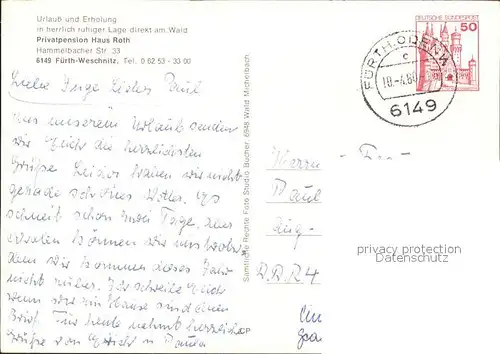 Urlaub und Erholung
in herrlich ruhiger Lage direkt am Wald
Privatpension Haus Roth
Hammelbacher Str. 33
6149 Fürth-Weschnitz, Tel. 0 62 53 - 33 00
Liebe Inge Lieber Paul
Aus unserem Urlaub senden
wir Euch die herzlichsten
Grüße. Leider haben wir nicht
gerade schönes Wetter. Es
schneit schon zwei Tage, aber
wir
dem wir kommen dieses Jahr
nicht rüber. Ich schreibe Euch
wenn wir zu Hause sind einen
Brief. Für heute nehmt herzliche
Grüße von und Paula
Sämtliche Rechte Foto Studio Bucher 6948 Wald Michelbach
FÜRTH, ODENW
c
6149
DEUTSCHE BUNDESPOST
50
Herrn
Paul
D.D.R.
privacy protection
Datenschutz